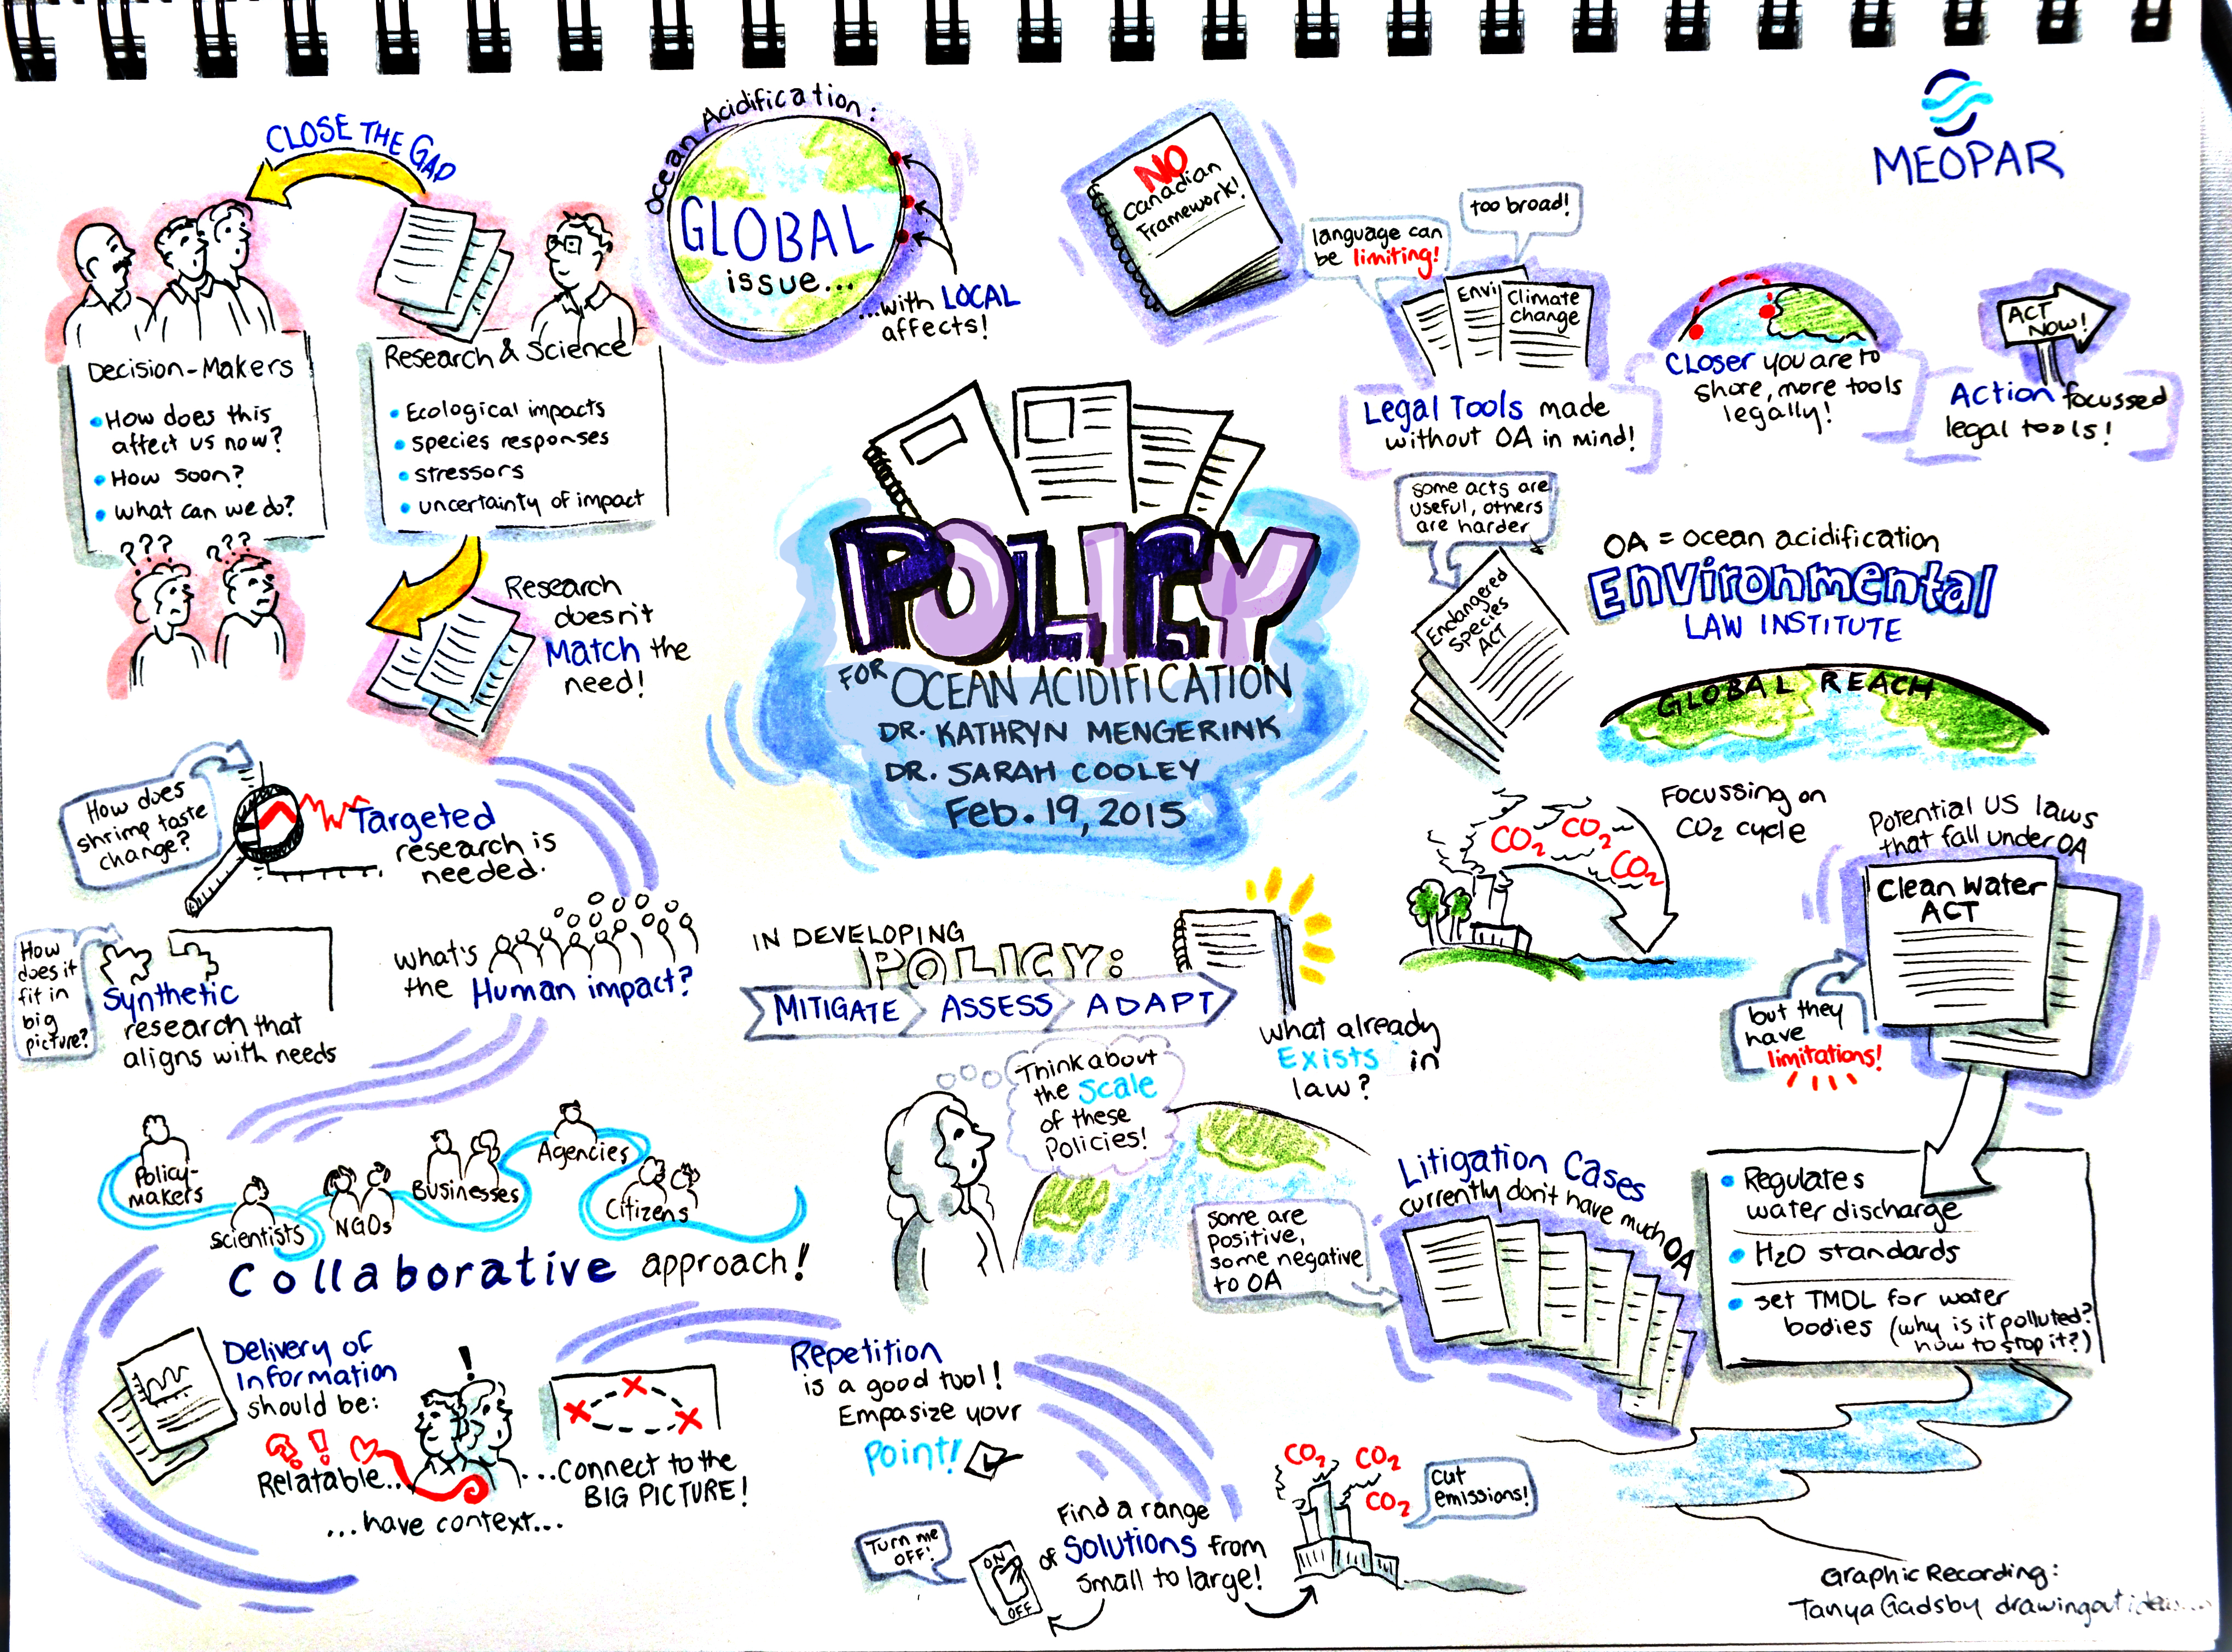 CLOSE THE GAP
Decision-Makers
How does this
affect us now?
How soon?
What can we do?
??? ???
Research & Science
Ecological impacts
species responses
stressors
uncertainty of impact
Research
doesn't
Match the
need!
Ocean Acidification:
GLOBAL
issue...
...with LOCAL
affects!
NO
Canadian
Framework!
language can
be limiting!
too broad!
Envi
Climate
change
Legal Tools made
without OA in mind!
MEOPAR
CLOSER you are to
shore, more tools
legally!
ACT
NOW!
Action focussed
legal tools!
POLICY
FOR OCEAN ACIDIFICATION
DR. KATHRYN MENGERINK
DR. SARAH COOLEY
Feb. 19, 2015
some acts are
useful, others
are harder
Endangered
Species
ACT
OA = ocean acidification
Environmental
LAW INSTITUTE
GLOBAL REACH
CO2 CO2
CO2
Focussing on
CO2 cycle
Potential US laws
that fall under OA
Clean Water
ACT
but they
have
limitations!
Regulates
water discharge
H2O standards
set TMDL for water
bodies (why is it polluted?
how to stop it?)
How does
shrimp taste
change?
Targeted
research is
needed.
How
does it
fit in
big
picture?
Synthetic
research that
aligns with needs
what's
the Human impact?
IN DEVELOPING
POLICY:
MITIGATE ASSESS ADAPT
what already
Exists in
law?
Think about
the Scale
of these
Policies!
Litigation Cases
currently don't have much OA
some are
positive,
some negative
to OA
Policy-
makers
Scientists
NGOs
Businesses
Agencies
Citizens
Collaborative approach!
Delivery of
Information
should be:
? ! !
Relatable...
...have context...
...connect to the
BIG PICTURE!
Repetition
is a good tool!
Empasize your
Point!
Find a range
of Solutions from
small to large!
Turn me
OFF!
ON
OFF
CO2 CO2
CO2
cut
emissions!
Graphic Recording:
Tanya Gadsby drawingout